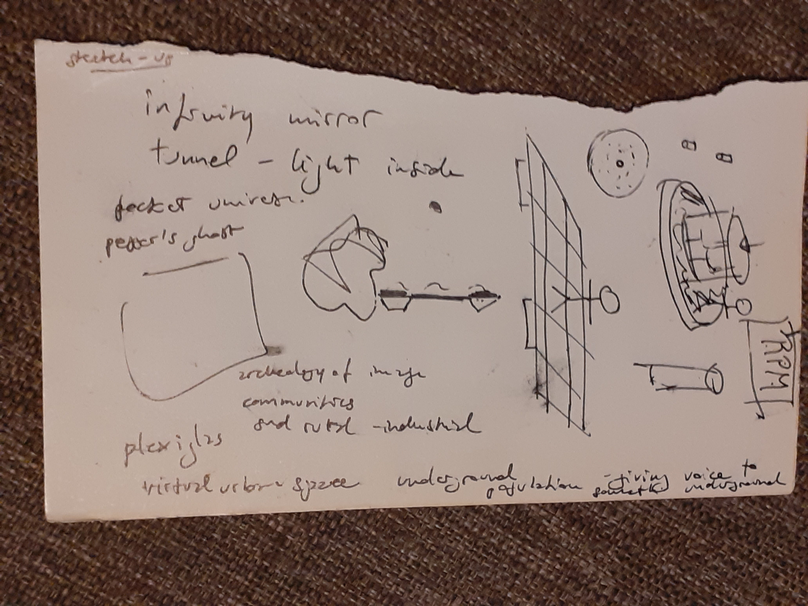 sketch-up
infinity mirror
tunnel - light inside
pocket universe.
pepper's ghost
archeology of image
communities
and rural -industrial
plexiglas
virtual urban space
underground
population
- giving voice to
underground
RPM